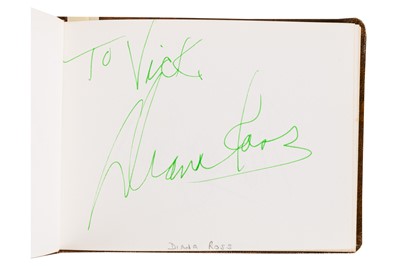 To Vick.
Diana Ross
DIANA ROSS